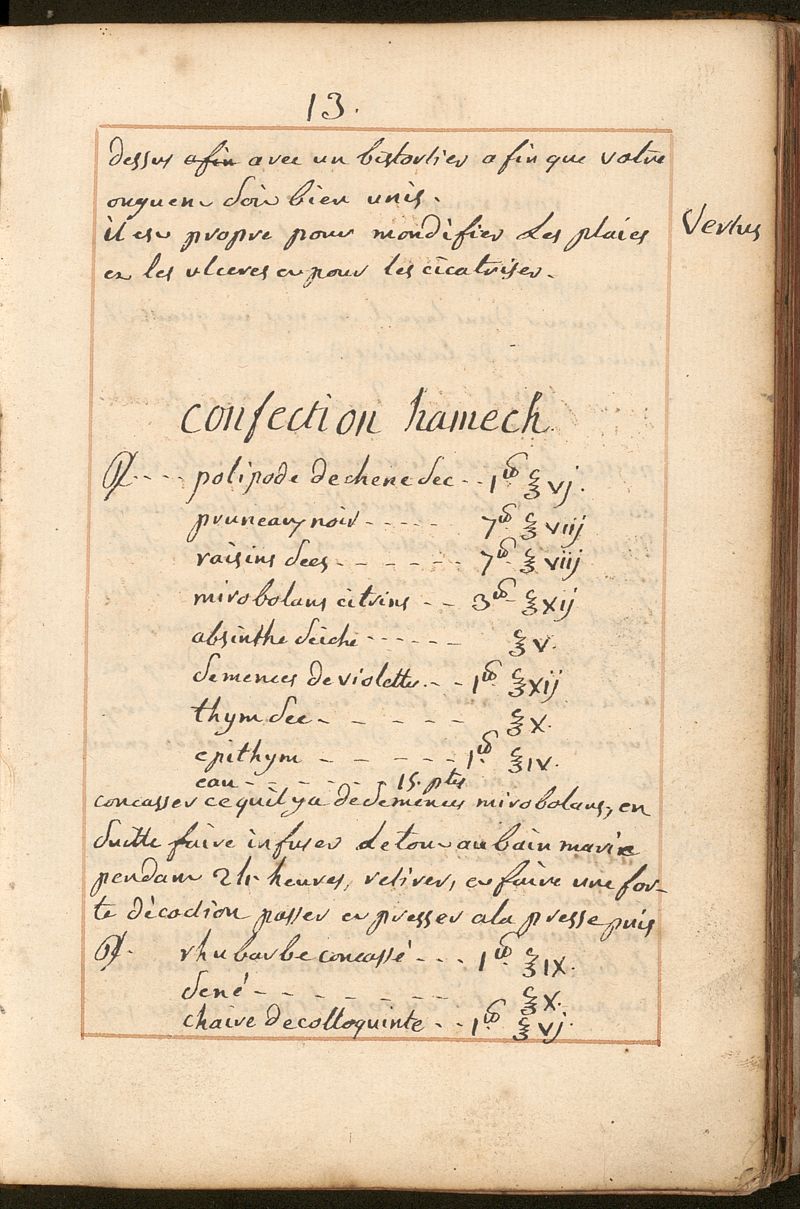 13.
dessus afin avec un bistortier afin que votre
onguent soit bien unis.
il est propre pour mondifier Les plaies
Vertus
et les ulceres et pour les cicatriser.
confection hamech
℞ - - - polipode de chene sec - - 1 ℔ ℥ vj.
pruneaux noir - - - - - 7 ℔ ℥ viij
raisins secs - - - - - - 7 ℔ ℥ viij
mirobolans citrins - - 3 ℔ ℥ xij
absinthe séiche - - - - - - ℥ v.
semences de violettes - - 1 ℔ ℥ xij
thym sec - - - - - ℥ x.
epithym - - - - - - 1 ℔ ℥ iv.
eau - - - - - - - 15. ptes
concasser ce quil y a de semences mirobolans, en
suitte faire infuser Le tout au bain marie
pendant 24 heures, retirer, et faire une for-
te décoction passer et presser a la presse puis
℞. rhubarbe concassé - - - 1 ℔ ℥ ix.
sené - - - - - - - ℥ x.
chaire de colloquinte - - 1 ℔ ℥ vj.